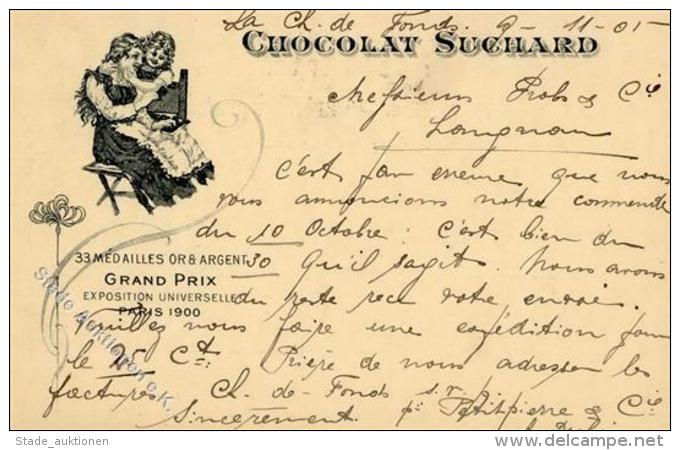 La Ch. de Fonds. 9-11-05
CHOCOLAT SUCHARD
Messieurs Probs & Cie
Langnau
c'est par erreur que nous
vous annoncions notre commande
du 10 Octobre: c'est bien du
33 MÉDAILLES OR & ARGENT
30 qu'il sagit. Nous avons
GRAND PRIX
EXPOSITION UNIVERSELLE
du reste recu votre envoi.
PARIS 1900
Veuillez nous faire une expédition pour
le 15 Ct. Prière de nous adresser les
factures Ch. de-Fonds s.v.
Sincèrement. p. Petitpierre & Cie
Stade Auktionen e.K.
Stade_auktionen
www.delcampe.net